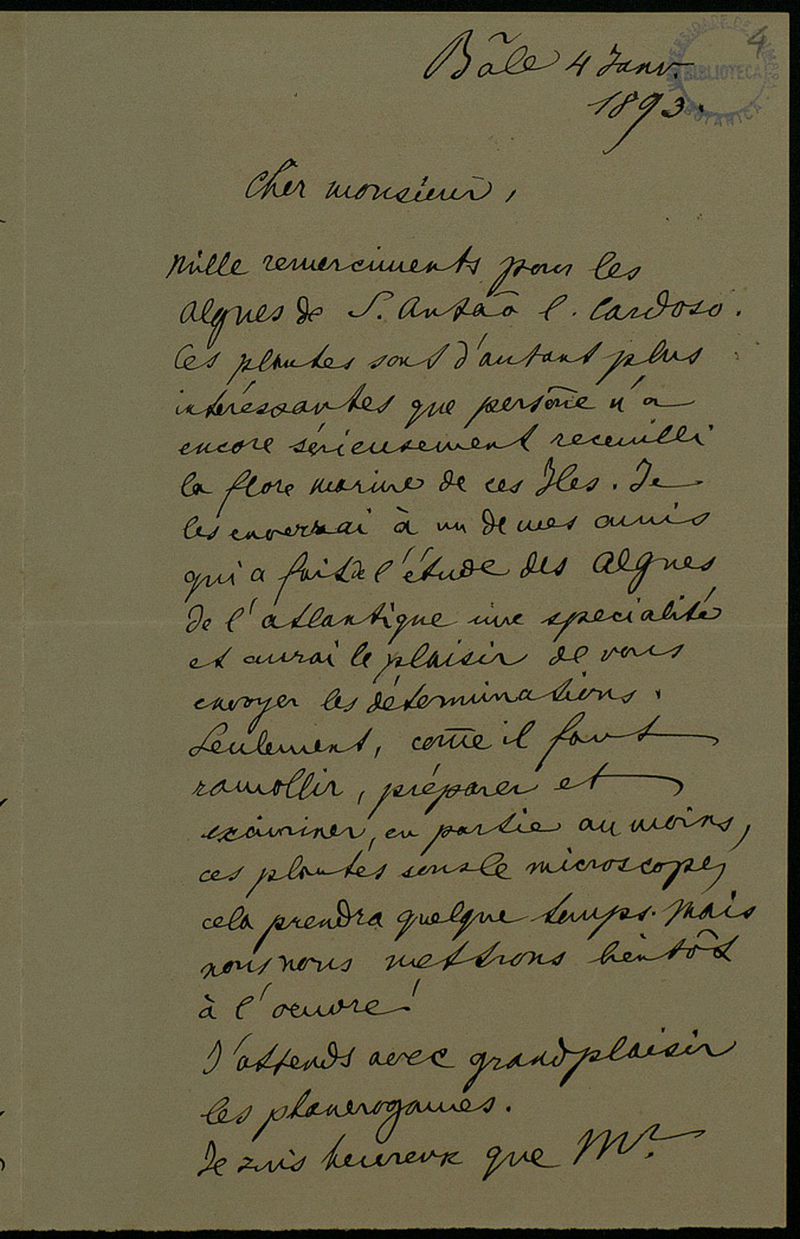 4
UNIVERSIDADE DE COIMBRA
BIBLIOTECA
BOTANICA
Bâle 4 Janv.
1893.
Cher monsieur,
Mille remerciments pour les
Algues de S. Antaõ l. Cardoso.
Ces plantes sont d'autant plus
intéressantes que persone̅ n'a
encore sérieusement recueilli
la flore marine de ces Iles. Je
les enverrai à un de mes amis
qui a fait de l'étude des Algues
de l'atlantique une specialité
et aurai le plaisir de vous
envoyer les déterminations.
Seulement, com̅e il faut
ramollir, préparer et
examiner, en partie au moins,
ces plantes sous le microscope,
cela prendra quelque temps. Mais
nous nous mettrons bientôt
à l'oeuvre!
J'attends avec grand plaisir
les phanerogames.
Je suis heureux que Mr.